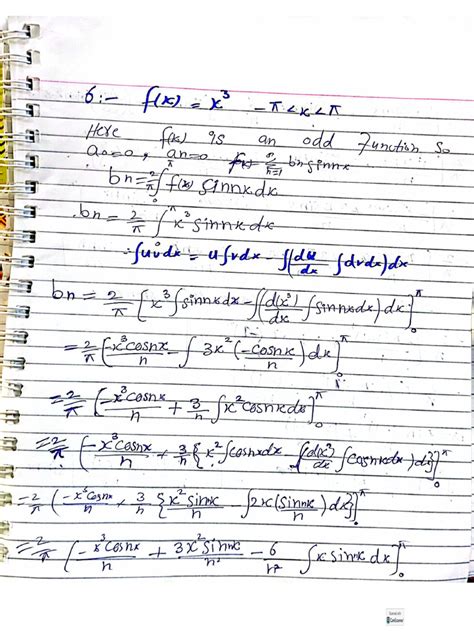 6:- f(x) = x³ -π<x<π
Here f(x) is an odd Function so
a₀=0, aₙ=0 f(x)= Σ(n=1)^∞ bn sinnx
bn = 2/π ∫₀^π f(x) sinnx dx
bn = 2/π ∫₀^π x³ sinnx dx
∵ ∫uvdx = u∫vdx - ∫(du/dx ∫dvdx)dx
bn = 2/π [x³∫sinnxdx - ∫(d(x³)/dx ∫sinnxdx)dx]₀^π
= 2/π [-x³cosnx/n - ∫3x²(-cosnx/n)dx]₀^π
= 2/π [-x³cosnx/n + 3/n ∫x²cosnxdx]₀^π
= 2/π [-x³cosnx/n + 3/n {x²∫cosnxdx - ∫(d(x²)/dx ∫cosnxdx)dx}]₀^π
= 2/π [-x³cosnx/n + 3/n {x²sinnx/n - ∫2x(sinnx/n)dx}]₀^π
= 2/π [-x³cosnx/n + 3x²sinnx/n² - 6/n² ∫x sinnx dx]₀^π